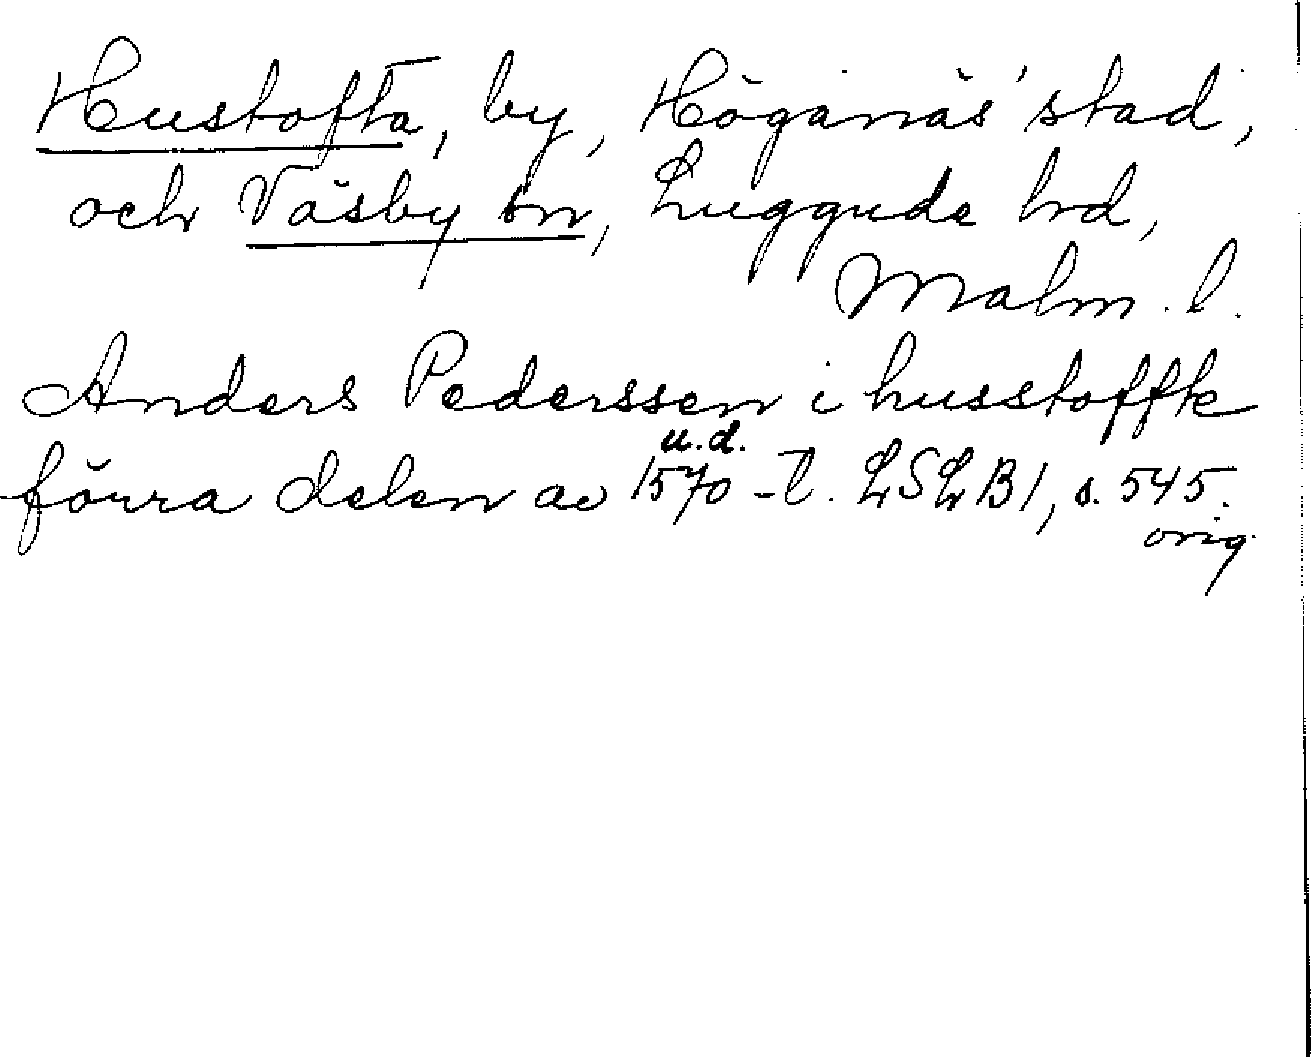 Hustofta, by, Höganäs stad,
och Väsby sn, Luggude hd,
Malm. l.
Anders Pederssen i husstoffte
u.d.
förra delen av 1570-t. LSLB1, s. 545.
orig.